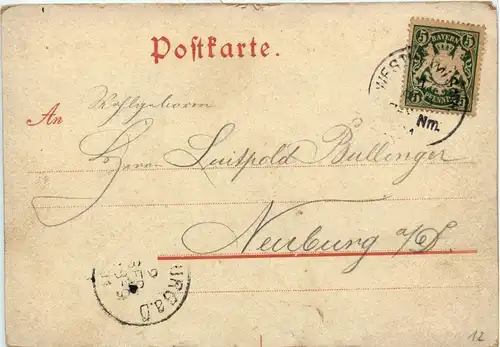 Postkarte.
5 BAYERN 5
5 PFENNIG 5
WEST
Nm.
An
Wohlgeboren
Herrn Luitpold Bullinger
Neuburg a/D.
URG a.D
SEP
12